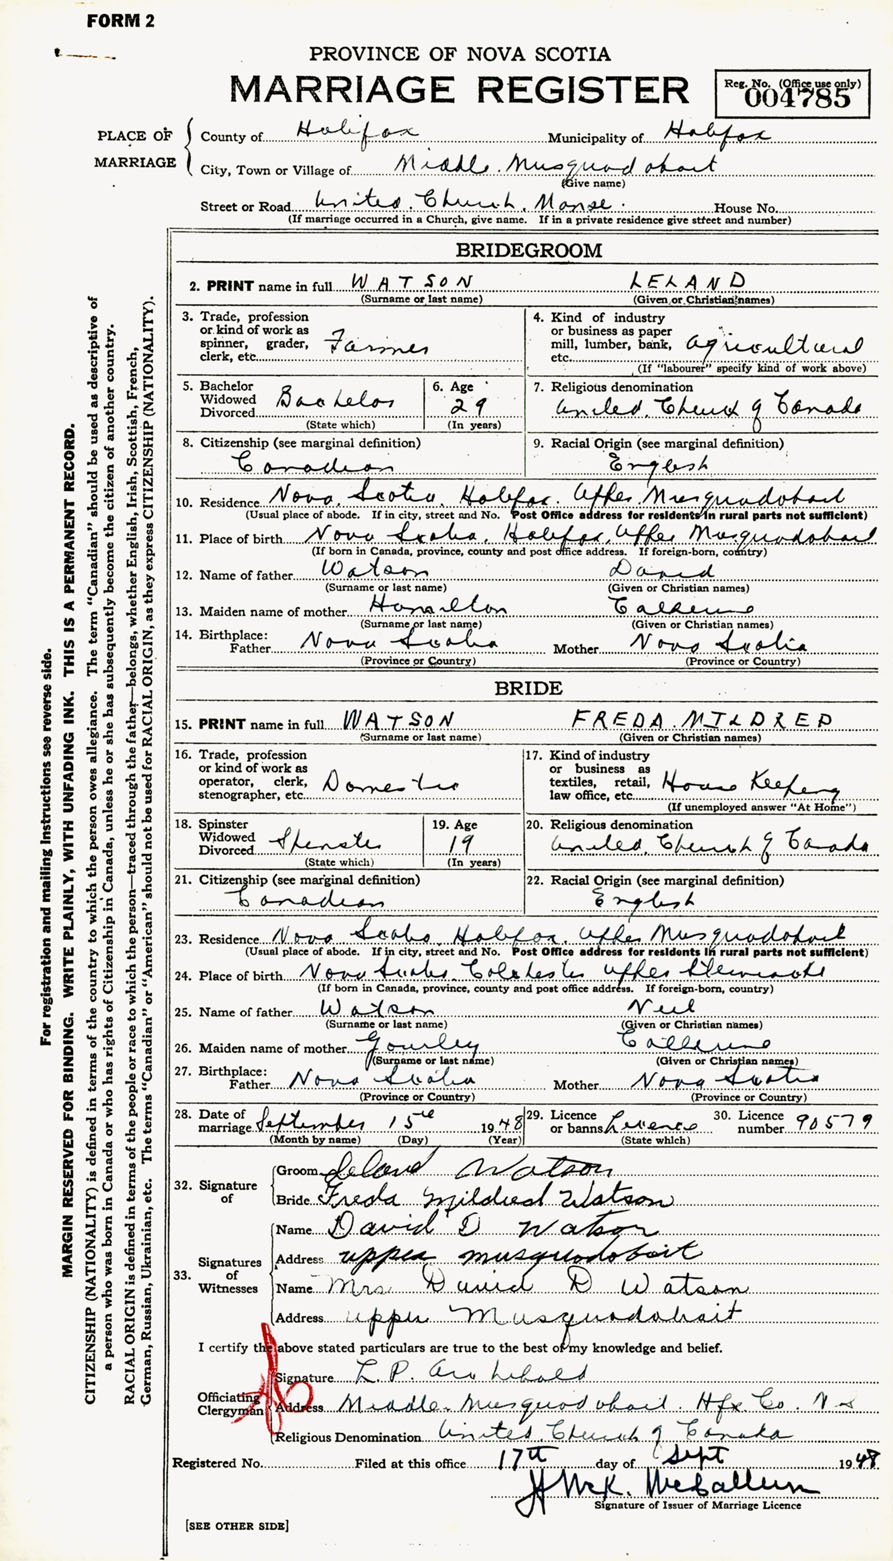 FORM 2
PROVINCE OF NOVA SCOTIA
MARRIAGE REGISTER
Reg. No. (Office use only)
004785
PLACE OF MARRIAGE
County of Halifax Municipality of Halifax
City, Town or Village of Middle Musquodoboit
(Give name)
Street or Road United Church Manse. House No.
(If marriage occurred in a Church, give name. If in a private residence give street and number)
BRIDEGROOM
2. PRINT name in full WATSON LELAND
(Surname or last name) (Given or Christian names)
3. Trade, profession or kind of work as spinner, grader, clerk, etc. Farmer
4. Kind of industry or business as paper mill, lumber, bank, etc. Agricultural
(If "labourer" specify kind of work above)
5. Bachelor Widowed Divorced Bachelor
(State which)
6. Age 29
(In years)
7. Religious denomination
United Church of Canada
8. Citizenship (see marginal definition)
Canadian
9. Racial Origin (see marginal definition)
English
10. Residence Nova Scotia, Halifax, Upper Musquodoboit
(Usual place of abode. If in city, street and No. Post Office address for residents in rural parts not sufficient)
11. Place of birth Nova Scotia, Halifax, Upper Musquodoboit
(If born in Canada, province, county and post office address. If foreign-born, country)
12. Name of father Watson David
(Surname or last name) (Given or Christian names)
13. Maiden name of mother Hamilton Catherine
(Surname or last name) (Given or Christian names)
14. Birthplace:
Father Nova Scotia Mother Nova Scotia
(Province or Country) (Province or Country)
BRIDE
15. PRINT name in full WATSON FREDA MILDRED
(Surname or last name) (Given or Christian names)
16. Trade, profession or kind of work as operator, clerk, stenographer, etc. Domestic
17. Kind of industry or business as textiles, retail, law office, etc. House Keeping
(If unemployed answer "At Home")
18. Spinster Widowed Divorced Spinster
(State which)
19. Age 19
(In years)
20. Religious denomination
United Church of Canada
21. Citizenship (see marginal definition)
Canadian
22. Racial Origin (see marginal definition)
English
23. Residence Nova Scotia, Halifax, Upper Musquodoboit
(Usual place of abode. If in city, street and No. Post Office address for residents in rural parts not sufficient)
24. Place of birth Nova Scotia Colchester Upper Stewiacke
(If born in Canada, province, county and post office address. If foreign-born, country)
25. Name of father Watson Neil
(Surname or last name) (Given or Christian names)
26. Maiden name of mother Gourley Catherine
(Surname or last name) (Given or Christian names)
27. Birthplace:
Father Nova Scotia Mother Nova Scotia
(Province or Country) (Province or Country)
28. Date of marriage September 15 1948
(Month by name) (Day) (Year)
29. Licence or banns Licence
(State which)
30. Licence number 90579
32. Signature of
Groom Leland Watson
Bride Freda Mildred Watson
33. Signatures of Witnesses
Name David D Watson
Address upper musquodoboit
Name Mrs David D Watson
Address upper Musquodoboit
I certify the above stated particulars are true to the best of my knowledge and belief.
Officiating Clergyman
Signature L. P. Archibald
Address Middle Musquodoboit Hfx Co. N S
Religious Denomination United Church of Canada
Registered No. Filed at this office 17th day of Sept 1948
H McK. McCallum
Signature of Issuer of Marriage Licence
[SEE OTHER SIDE]
For registration and mailing instructions see reverse side.
MARGIN RESERVED FOR BINDING. WRITE PLAINLY, WITH UNFADING INK. THIS IS A PERMANENT RECORD.
CITIZENSHIP (NATIONALITY) is defined in terms of the country to which the person owes allegiance. The term "Canadian" should be used as descriptive of
a person who was born in Canada or who has rights of Citizenship in Canada, unless he or she has subsequently become the citizen of another country.
RACIAL ORIGIN is defined in terms of the people or race to which the person—traced through the father—belongs, whether English, Irish, Scottish, French,
German, Russian, Ukrainian, etc. The terms "Canadian" or "American" should not be used for RACIAL ORIGIN, as they express CITIZENSHIP (NATIONALITY).